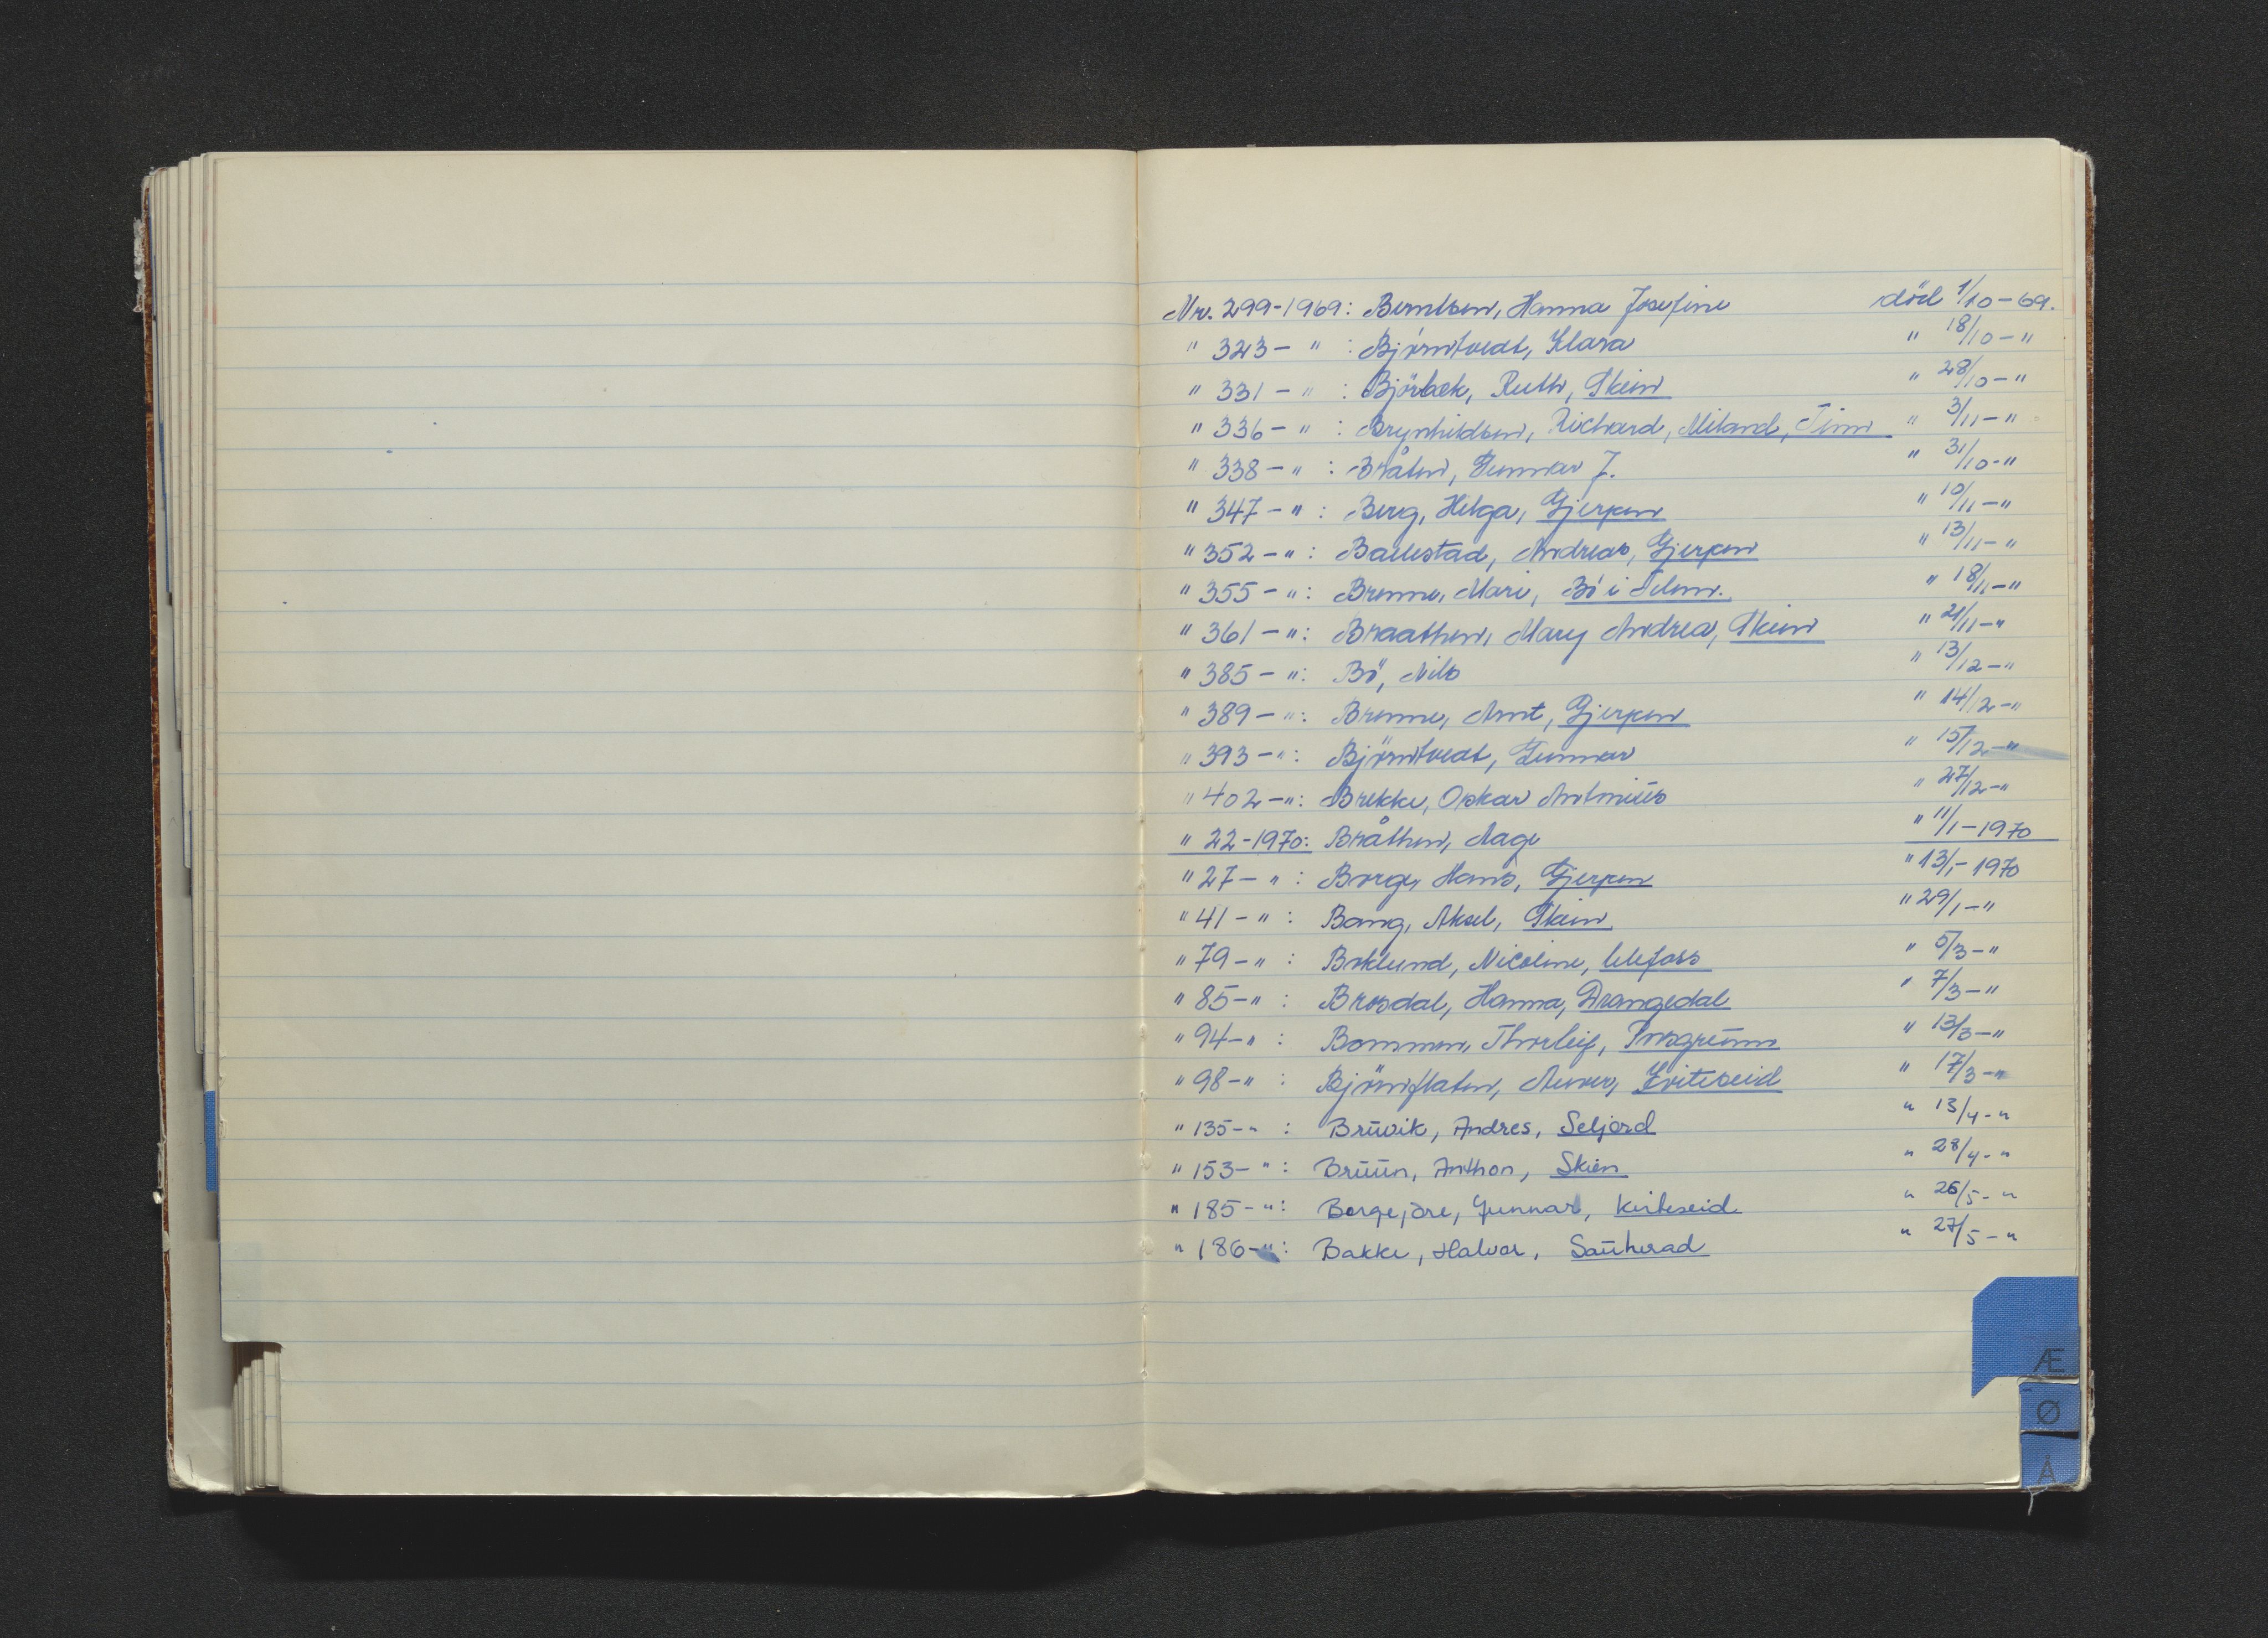 Nr. 299-1969: Berntsen, Hanna Josefine død 1/10-69.
" 323- " : Björntvedt, Klara " 18/10-"
" 331- " : Björbek, Ruth, Skien " 28/10-"
" 336- " : Brynhildsen, Richard, Miland, Tinn " 3/11-"
" 338- " : Bråten, Gunnar J. " 31/10-"
" 347- " : Berg, Helga, Gjerpen " 10/11-"
" 352- " : Ballestad, Andreas, Gjerpen " 13/11-"
" 355- " : Brenne, Mari, Bö i Telem. " 18/11-"
" 361- " : Braathen, Mary Andrea, Skien " 21/11-"
" 385- " : Bö, Nils " 13/12-"
" 389- " : Brenne, Arnt, Gjerpen " 14/12-"
" 393- " : Björntvedt, Gunnar " 15/12-"
" 402- " : Brekke, Oskar Antonius " 27/12-"
" 22-1970: Bråthen, Aage " 11/1-1970
" 27- " : Borge, Hans, Gjerpen " 13/1-1970
" 41- " : Bang, Aksel, Skien " 29/1-"
" 79- " : Boklund, Nicoline, Ulefoss " 5/3-"
" 85- " : Brosdal, Hanna, Drangedal " 7/3-"
" 94- " : Bommen, Thorleif, Porsgrunn " 13/3-"
" 98- " : Björnflaten, Kviteseid " 17/3-"
" 135- " : Bruvik, Andres, Seljord " 13/4-"
" 153- " : Bruun, Anthon, Skien " 28/4-"
" 185- " : Borgejöre, Gunnar, Kviteseid " 26/5-"
" 186- " : Bakke, Halvor, Sauherad " 27/5-"
Æ
Ø
Å